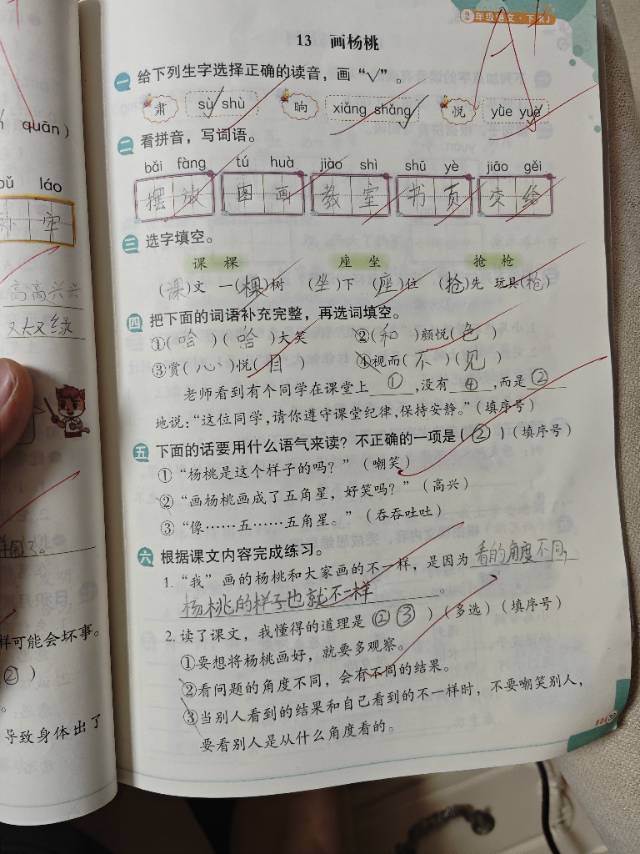 年级语文·下RJ
13 画杨桃
一 给下列生字选择正确的读音，画“√”。
肃 sù shù 响 xiǎng shǎng 悦 yūe yuè
二 看拼音，写词语。
bǎi fàng tú huà jiào shì shū yè jiāo gěi
摆放 图画 教室 书页 交给
三 选字填空。
课 棵 座 坐 抢 枪
(课)文 一(棵)树 (坐)下 (座)位 (抢)先 玩具(枪)
四 把下面的词语补充完整，再选词填空。
①(哈)(哈)大笑 ②(和)颜悦(色)
③赏(心)悦(目) ④视而(不)(见)
老师看到有个同学在课堂上①,没有④,而是②
地说:“这位同学,请你遵守课堂纪律,保持安静。”(填序号)
五 下面的话要用什么语气来读？不正确的一项是(②)(填序号)
①“杨桃是这个样子的吗？”(嘲笑)
②“画杨桃画成了五角星，好笑吗？”(高兴)
③“像……五……五角星。”(吞吞吐吐)
六 根据课文内容完成练习。
1.“我”画的杨桃和大家画的不一样，是因为看的角度不同,
杨桃的样子也就不一样。
2.读了课文，我懂得的道理是(②③)(多选)(填序号)
①要想将杨桃画好，就要多观察。
②看问题的角度不同，会有不同的结果。
③当别人看到的结果和自己看到的不一样时，不要嘲笑别人，
要看别人是从什么角度看的。
quān)
láo
牢
高高兴兴
又大又绿
样可能会坏事。
②)
导致身体出了